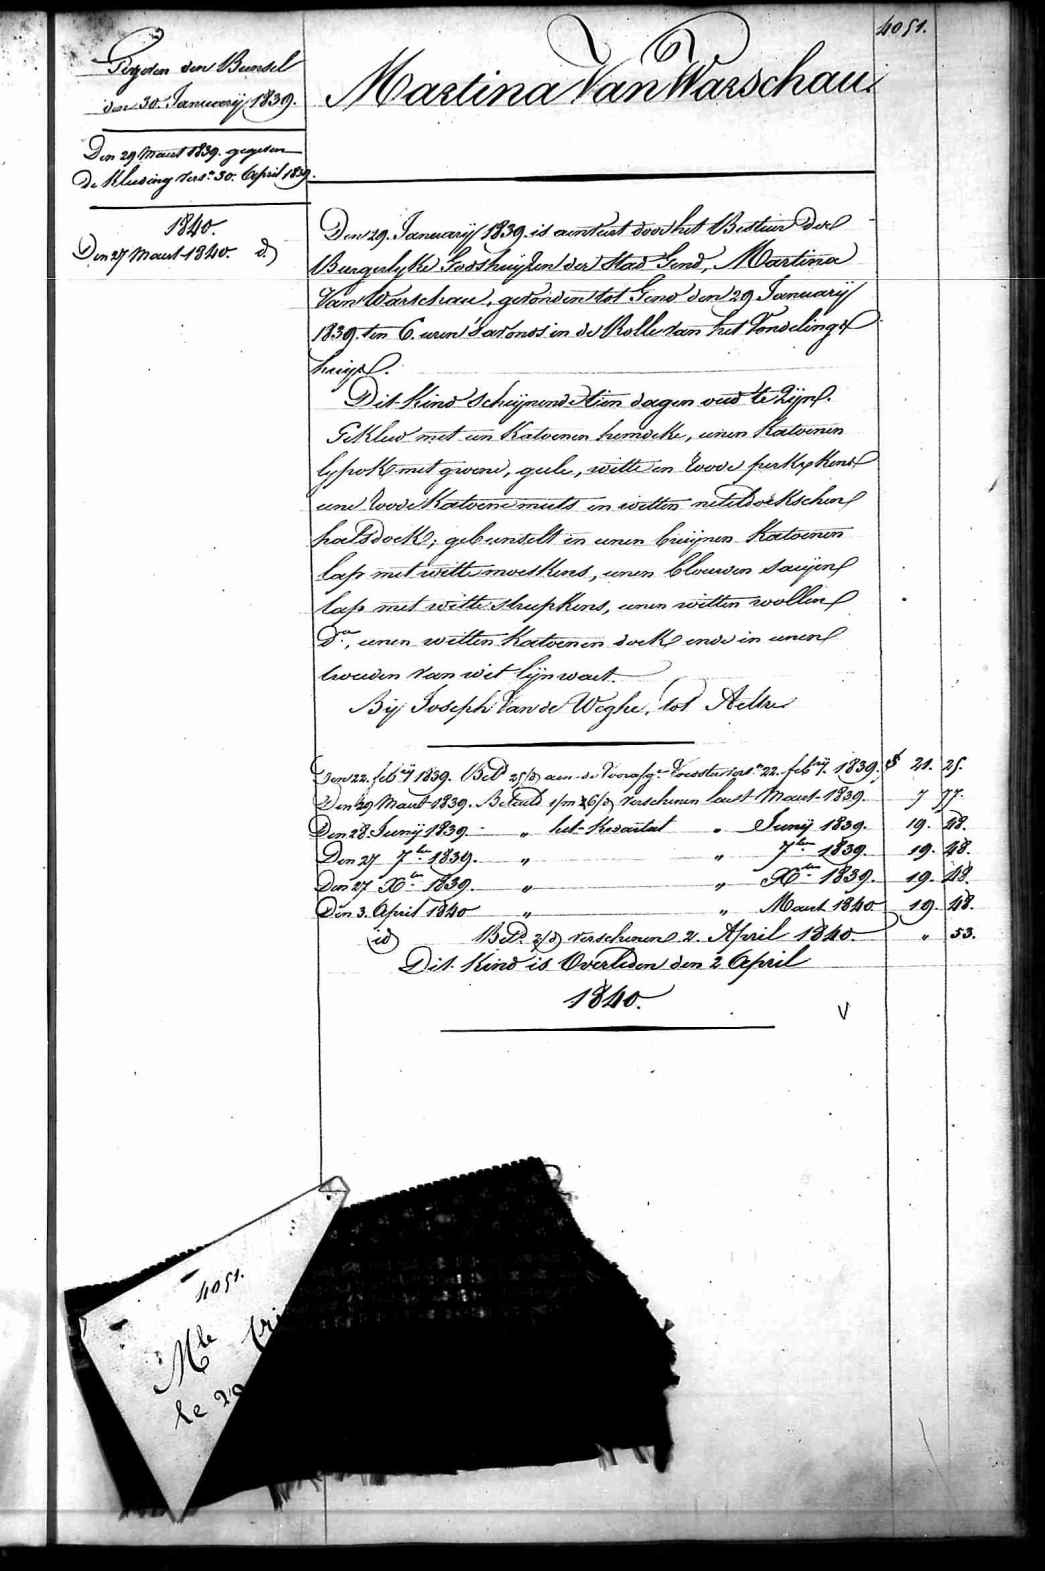 4051.
Gegeven den Bunsel
den 30. Januarij 1839.
Den 29 Maart 1839. gegeven
De Kleeding vers.n 30. April 1839.
1840.
Den 27 Maart 1840. d.o
Martina Van Warschau
Den 29. Januarij 1839. is aenveirt door het Bestier der
Burgerlyke Godshuijzen der Stad Gend, Martina
Van Warschau, gevonden tot Gend den 29 Januarij
1839. ten 6. uren s'avonds in de Rolle van het Vondelings
huijs.
Dit Kind scheijnende tien dagen oud te zijn.
Gekleed met een Katoenen hemdeke, eenen Katoenen
lyfrok met groene, geele, witte en roode perkxkens
eene roode Katoene muts en witten neteldoekschen
halsdoek; gebunselt in eenen bruijnen Katoenen
lap met witte moeskens, eenen blauwen saeijen
lap met witte streepkens, eenen witten wollen
D.o, eenen witten Katoenen doek ende in eenen
tweeden van wit lijnwaet.
Bij Joseph Van de Weghe, tot Aeltre
Den 22. feb.ry 1839. Bet.d 25/d aen de Voorafg.e Voedster vers.n 22. feb.ry 1839. 21. 25.
Den 29 Maart 1839. Betaeld 1/m & 6/d verschenen laest Maart 1839. 7 77.
Den 28. Junij 1839. " het Kwartael " Junij 1839. 19. 48.
Den 27 7.ber 1839. " " 7.ber 1839 19. 48.
Den 27 X.ber 1839. " " X.ber 1839. 19. 48.
Den 3. April 1840 " " Maart 1840 19. 48.
id Bet.d 2/d verschenen 2. April 1840. " 53.
Dit Kind is Overleden den 2 April
1840.
V
4051.
Mle
le 29